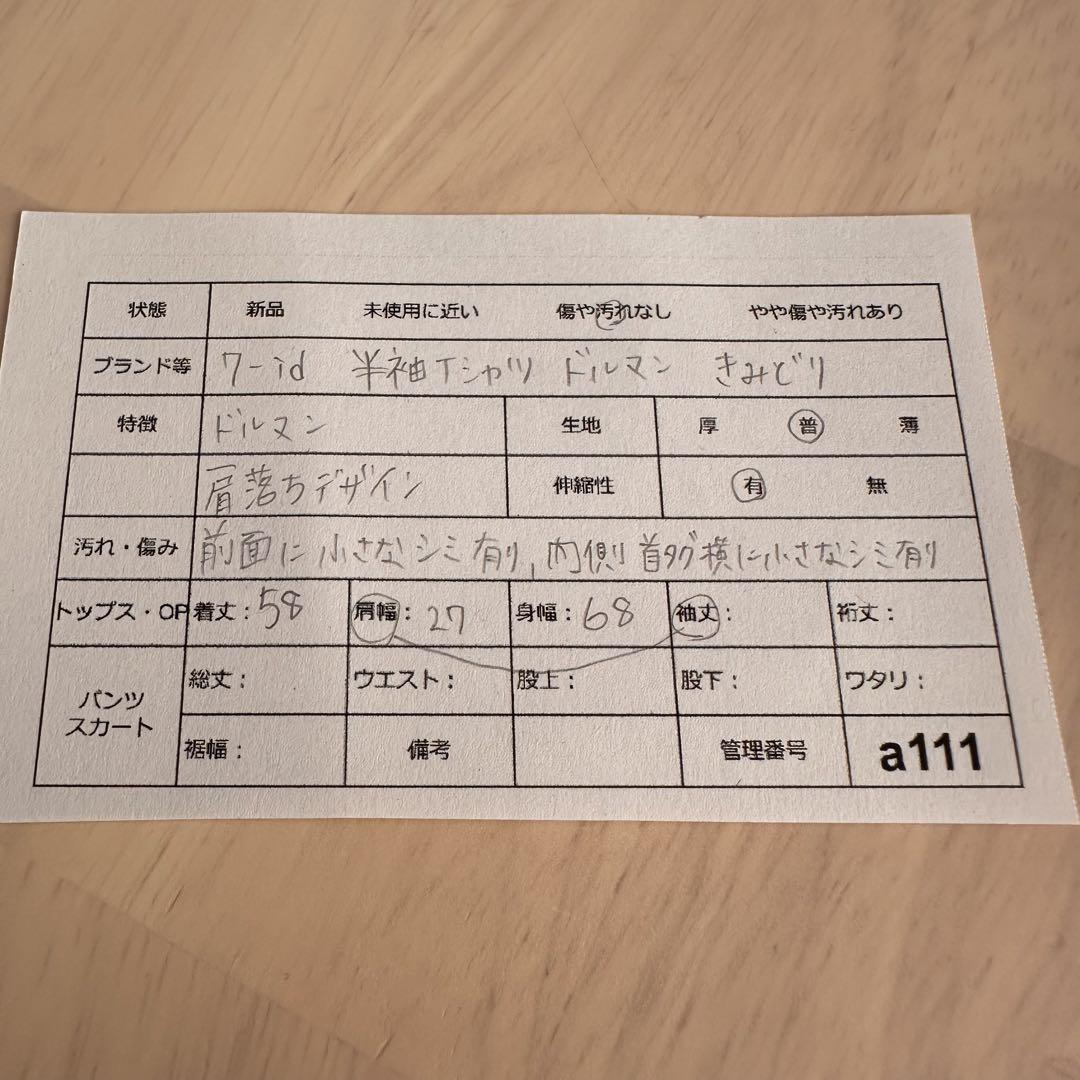 状態 新品 未使用に近い 傷や汚れなし やや傷や汚れあり
ブランド等 7-id 半袖Tシャツ ドルマン きみどり
特徴 ドルマン 生地 厚 普 薄
肩落ちデザイン 伸縮性 有 無
汚れ・傷み 前面に小さなシミ有り、内側首タグ横に小さなシミ有り
トップス・OP 着丈：58 肩幅：27 身幅：68 袖丈：裄丈：
パンツ スカート 総丈： ウエスト： 股上： 股下： ワタリ：
裾幅： 備考 管理番号 a111